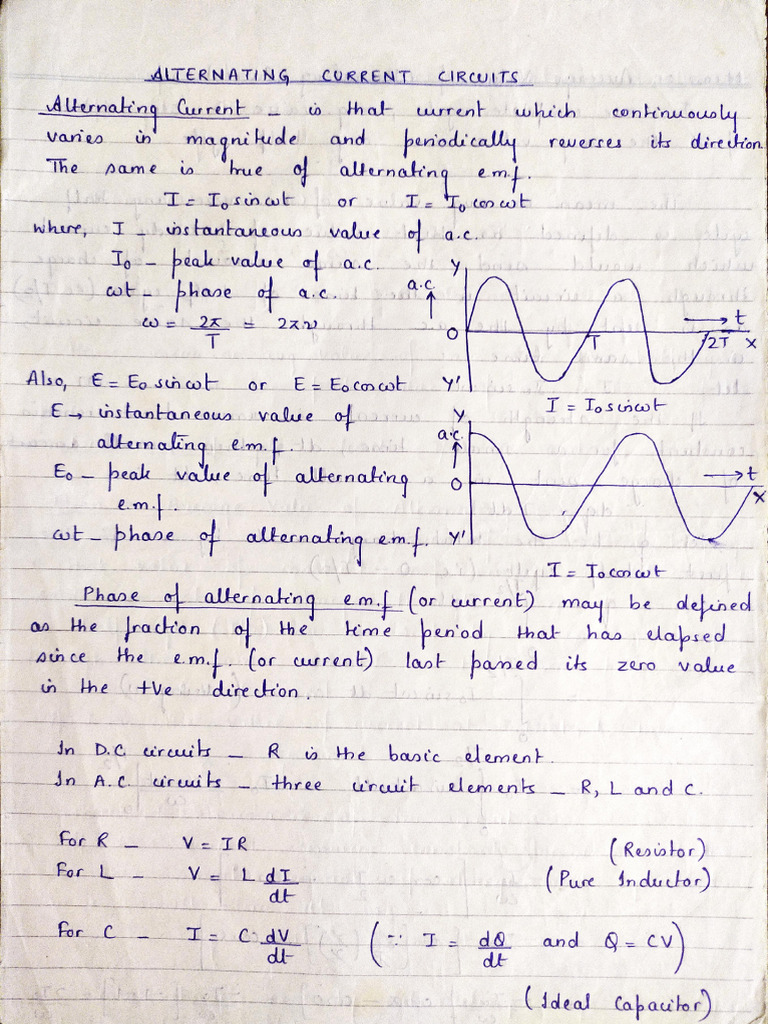 ALTERNATING CURRENT CIRCUITS
Alternating Current - is that current which continuously
varies in magnitude and periodically reverses its direction.
The same is true of alternating e.m.f.
I = I₀ sin ωt or I = I₀ cos ωt
where, I - instantaneous value of a.c.
I₀ - peak value of a.c.
ωt - phase of a.c.
ω = 2π/T = 2πν
Y
a.c.
O
T
2T
t
X
Y'
I = I₀ sin ωt
Also, E = E₀ sin ωt or E = E₀ cos ωt
E → instantaneous value of
alternating e.m.f.
E₀ - peak value of alternating
e.m.f.
ωt - phase of alternating e.m.f.
Y
a.c.
O
t
X
Y'
I = I₀ cos ωt
Phase of alternating e.m.f (or current) may be defined
as the fraction of the time period that has elapsed
since the e.m.f. (or current) last passed its zero value
in the +ve direction.
In D.C circuits - R is the basic element.
In A.C. circuits - three circuit elements - R, L and C.
For R - V = IR (Resistor)
For L - V = L dI/dt (Pure Inductor)
For C - I = C dV/dt (∵ I = dQ/dt and Q = CV)
(Ideal Capacitor)